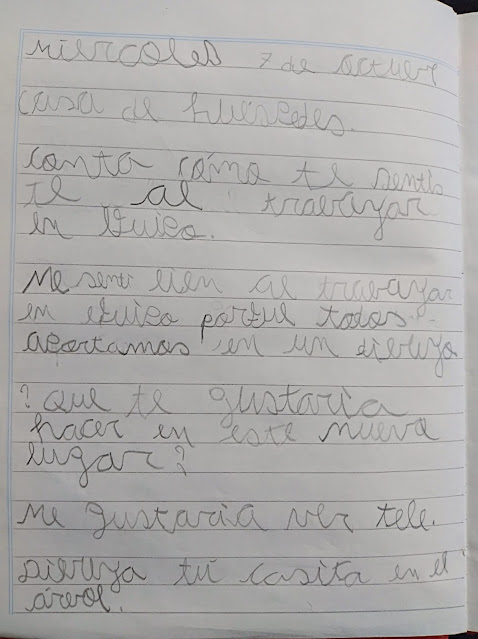 Miercoles 7 de octubre
Casa de huéspedes.
Contá cómo te sentis
te al trabajar
en equipo.
Me senti bien al trabajar
en equipo porque todos
aportamos en un dibujo
? que te gustaria
hacer en este nuevo
lugar?
Me gustaria ver tele.
Dibuja tú casita en el
árbol.